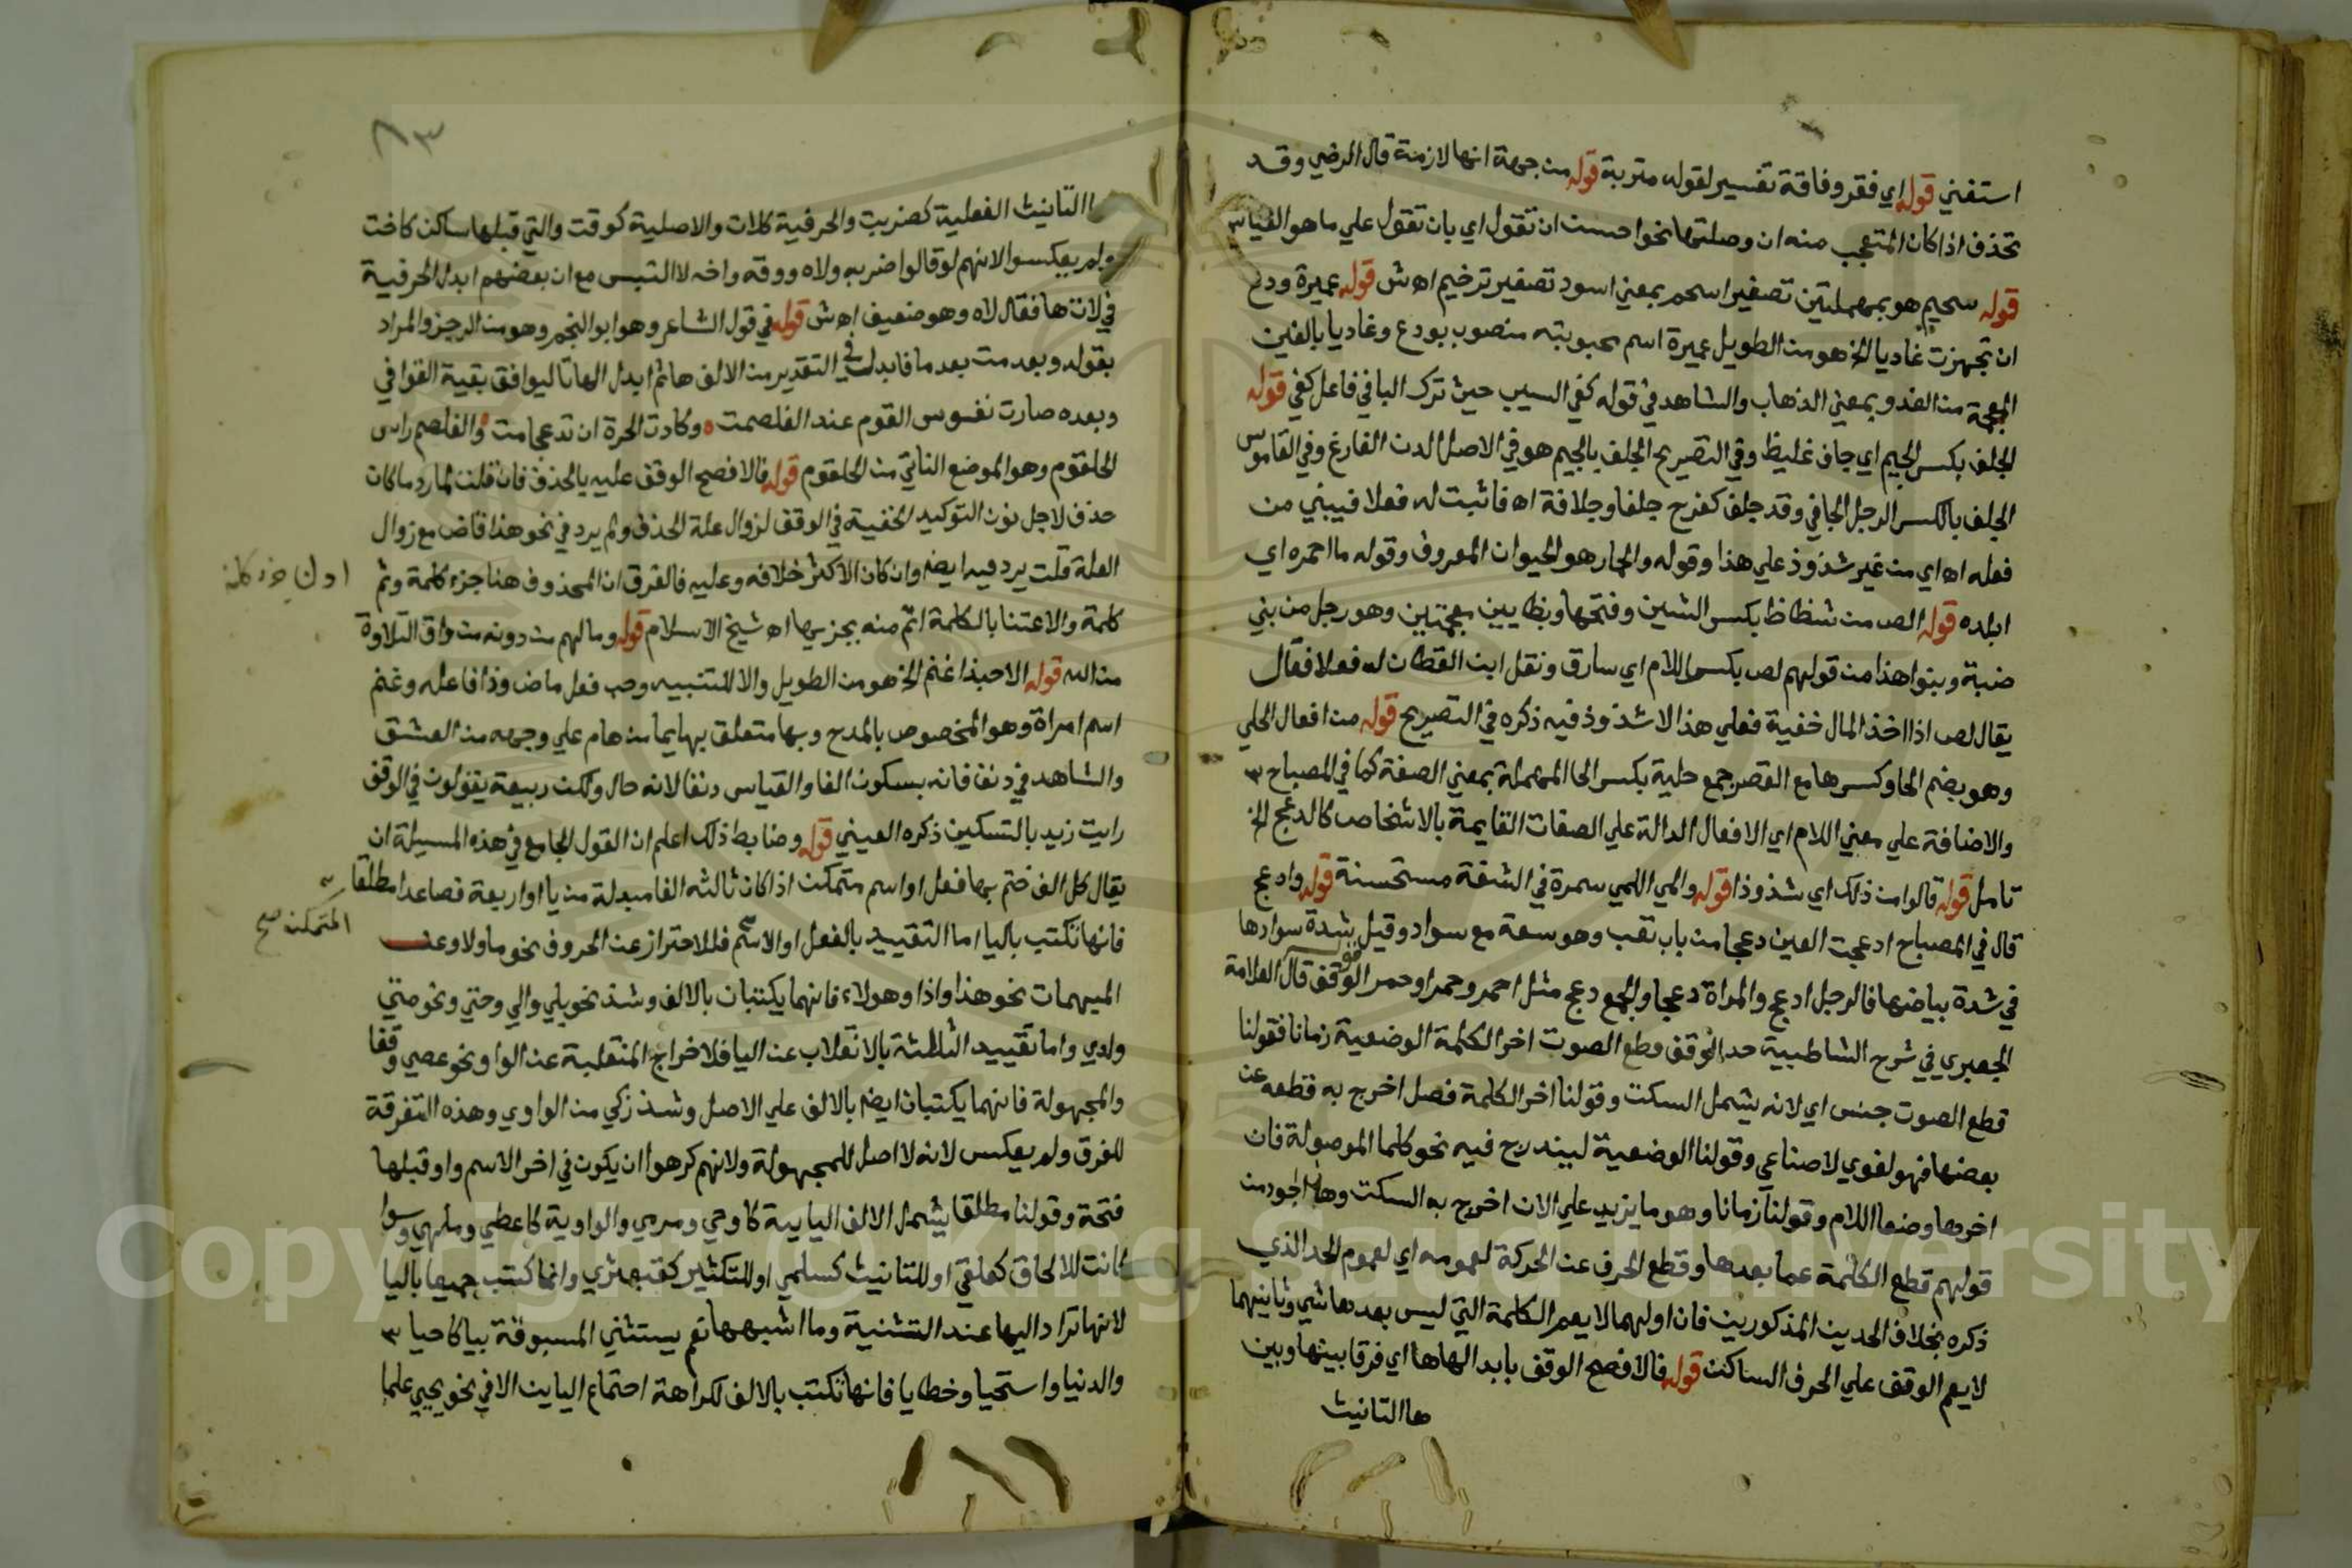 استغني قوله اي فقر وفاقة تفسير لقوله متربة قوله من جهة انها لازمة قال الرضي وقد
تحذف اذا كان المتعجب منه ان وصلتها نحوا حسن ان تقول اي بان تقول علي ما هو القياس
قوله سحيم هو بمهملتين تصغير اسحم بمعني اسود تصغير ترخيم اه ش قوله عميرة ودع
ان تجهزت غاديا الخ هو من الطويل عميرة اسم محبوبته منصوب بودع وغاديا بالغين
المعجمة من الغدو بمعني الذهاب والشاهد في قوله كفي الشيب حيث ترك البا في فاعل كفي قوله
الجلف بكسر الجيم اي جاف غليظ وفي التصريح الجلف بالجيم هو في الاصل الدن الفارغ وفي القاموس
الجلف بالكسر الرجل الجافي وقد جلف كفرح جلفا وجلافة اه فاثبت له فعلا فيبني من
فعله اه اي من غير شذوذ علي هذا وقوله والحمار هو الحيوان المعروف وقوله ما احمره اي
ابلده قوله الص من شظاظ بكسر الشين وفتحها وبظايين معجمتين وهو رجل من بني
ضبة وبنوا هذا من قولهم لص بكسر اللام اي سارق ونقل ابن القطان له فعلا فقال
يقال لص اذا اخذ المال خفية فعلي هذا لا شذوذ فيه ذكره في التصريح قوله من افعال الحلي
وهو بضم الحا وكسرها مع القصر جمع حلية بكسر الحا المهملة بمعني الصفة كما في المصباح
والاضافة علي معني اللام اي الافعال الدالة علي الصفات القايمة بالاشخاص كالدعج الخ
تامل قوله قالوا من ذلك اي شذوذا قوله والمي اللمي سمرة في الشفة مستحسنة قوله وادعج
قال في المصباح ادعجت العين دعجا من باب تعب وهو سعة مع سواد وقيل شدة سوادها
في شدة بياضها فالرجل ادعج والمراة دعجا والجمع دعج مثل احمر وحمرا وحمر الوقف قال العلامة
الجعبري في شرح الشاطبية حد الوقف قطع الصوت اخر الكلمة الوضعية زمانا فقولنا
قطع الصوت جنس اي لانه يشمل السكت وقولنا اخر الكلمة فصل اخرج به قطعه عن
بعضها فهو لغوي لا صناعي وقولنا الوضعية ليندرج فيه نحو كلما الموصولة فان
اخرها وضعا اللام وقولنا زمانا وهو ما يزيد علي الان اخرج به السكت وهذا اجود من
قولهم قطع الكلمة عما بعدها وقطع الحرف عن الحركة لعمومه اي لعموم الحد الذي
ذكره بخلاف الحدين المذكورين فان اولهما لا يعم الكلمة التي ليس بعدها شي وثانيهما
لا يعم الوقف علي الحرف الساكن قوله فالافصح الوقف بابدالها ها اي فرقا بينها وبين
ها التانيث
٨٣
ا التانيث الفعلية كضربت والحرفية كلات والاصلية كوقت والتي قبلها ساكن كاخت
ولم يعكسوا لانهم لو قالوا ضربه ولاه ووقه واخه لا التبس مع ان بعضهم ابدل الحرفية
في لات ها فقال لاه وهو ضعيف اه ش قوله في قول الشاعر وهو ابو النجم وهو من الرجز والمراد
بقوله وبعد مت بعد ما فابدل في التقدير من الالف ها ثم ابدل الها تا ليوافق بقية القوافي
وبعده صارت نفوس القوم عند الغلصمت وكادت الحرة ان تدعي امت والغلصم راس
الحلقوم وهو الموضع الناتي من الحلقوم قوله فالافصح الوقف عليه بالحذف فان قلت لما رد ما كان
حذف لاجل نون التوكيد الخفية في الوقف لزوال علة الحذف ولم يرد في نحو هذا قاض مع زوال
العلة قلت يرد فيه ايضا وان كان الاكثر خلافه وعليه فالفرق ان المحذوف هنا جزء كلمة وثم
كلمة والاعتنا بالكلمة اتم منه بجزيها اه شيخ الاسلام قوله وما لهم من دونه من واق التلاوة
من الله قوله الا حبذا غنم الخ هو من الطويل والا للتنبيه وحب فعل ماض وذا فاعله وغنم
اسم امراة وهو المخصوص بالمدح وبها متعلق بهايما من هام علي وجهه من العشق
والشاهد في دنف فانه بسكون الفا والقياس دنفا لانه حال ولكن ربيعة يقولون في الوقف
رايت زيد بالتسكين ذكره العيني قوله وضابط ذلك اعلم ان القول الجامع في هذه المسيلة ان
يقال كل الف ختم بها فعل او اسم متمكن اذا كان ثالثه الفا مبدلة من يا او اربعة فصاعدا مطلقا
المتمكن صح
فانها تكتب باليا اما التقييد بالفعل او الاسم فللاحتراز عن الحروف نحو ما ولا وعن
المبهمات نحو هذا واذا وهولاء فانهما يكتبان بالالف وشذ نحو بلي والي وحتي ونحو متي
ولدي واما تقييد الثلثة بالانقلاب عن اليا فلاخراج المنقلبة عن الواو نحو عصي وقفا
والمجهولة فانهما يكتبان ايضا بالالف علي الاصل وشذ زكي من الواوي وهذه التفرقة
للفرق ولم يعكس لانه لا اصل للمجهولة ولانهم كرهوا ان يكون في اخر الاسم واو قبلها
فتحة وقولنا مطلقا يشمل الالف اليايية كاوحي ومرمي والواوية كاعطي وملهي وسوا
كانت للالحاق كعلقي او للتانيث كسلمي او للتكثير كقبعثري وانما كتب جميعها باليا
لانها تراد اليها عند التثنية وما اشبهها نعم يستثني المسبوقة بيا كاحيا
والدنيا واستحيا وخطايا فانها تكتب بالالف لكراهة اجتماع اليايين الا في نحو يحيي علما